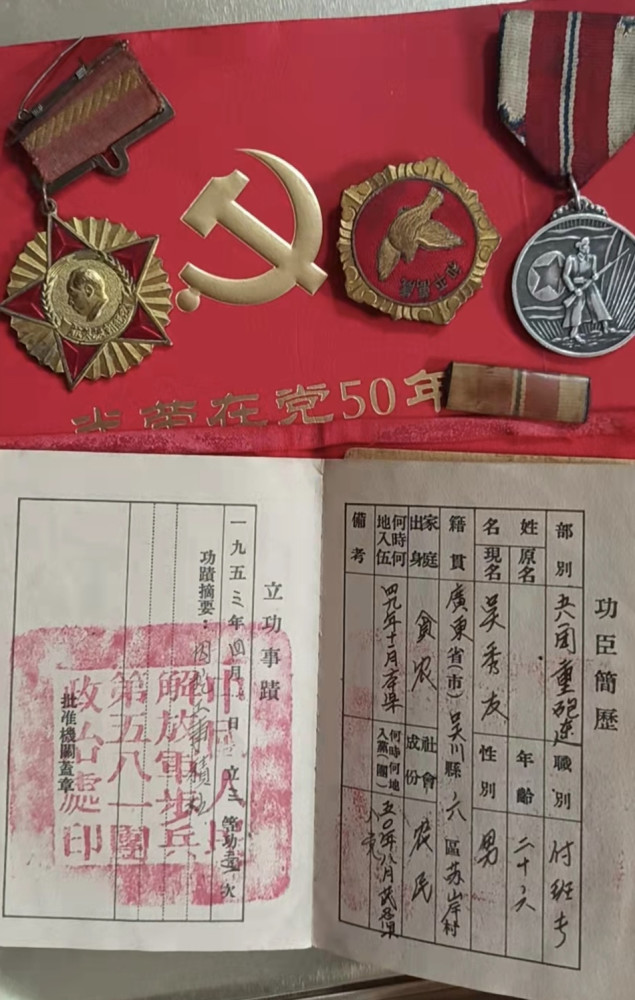 光荣在党50年
功臣簡歷
部別 五八一團重砲連 職別 付班長
姓名 原名 年齡 二十六
現名 吴秀友 性別 男
籍貫 廣東省(市)吴川縣六區苏岸村
家庭出身 貧农 社會成份 农民
何時何地入伍 四九年十二月 何時何地入黨(團) 五〇年八月
備考
立功事蹟
一九五三年四月 日 立三等功 次
功蹟摘要:
批准機關蓋章
中國人民
解放軍步兵
第五八一團
政治處印